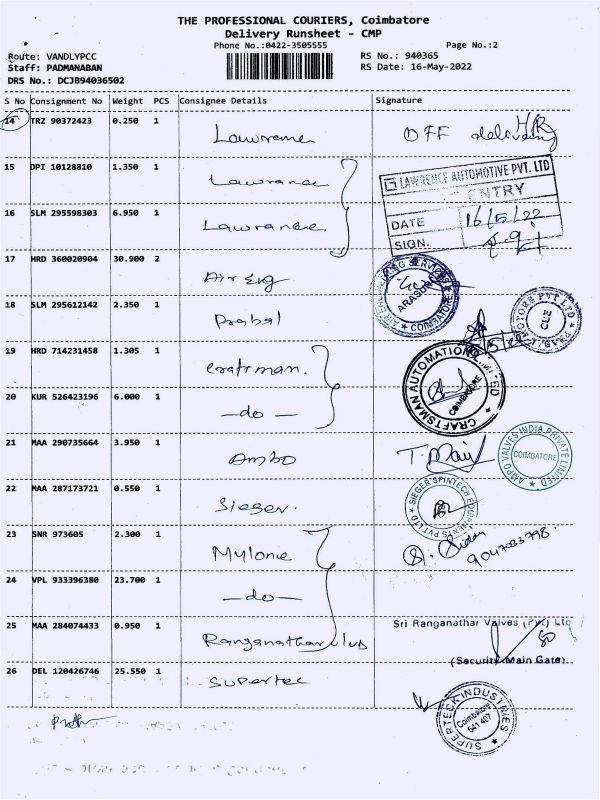 THE PROFESSIONAL COURIERS, Coimbatore
Delivery Runsheet - CMP
Phone No.:0422-3505555
Page No.:2
Route: VANDLYPCC
RS No.: 940365
Staff: PADMANABAN
RS Date: 16-May-2022
DRS No.: DCJB94036502
S No Consignment No Weight PCS Consignee Details Signature
14 TRZ 90372423 0.250 1 OFF
15 DPI 10128810 1.350 1 Lawrance
LAWRENCE AUTOMOTIVE PVT. LTD
ENTRY
16 SLM 295598303 6.950 1 Lawrance
DATE 16/5/22
SIGN.
17 HRD 360020904 30.900 2 Air Eng
AIR ENGINEERING SERVICES
COIMBATORE
18 SLM 295612142 2.350 1 Prabal
19 HRD 714231458 1.305 1 Craftman.
CRAFTSMAN AUTOMATION LIMITED
COIMBATORE
20 KUR 526423196 6.000 1 -do-
21 MAA 290735664 3.950 1 Ambo
AMPO VALVES INDIA PRIVATE LIMITED
COIMBATORE
22 MAA 287173721 0.550 1 Sieger.
SIEGER SPINTECH EQUIPMENTS PVT LTD
23 SNR 973605 2.300 1 Mylone
9047083798.
24 VPL 933396380 23.700 1 -do-
25 MAA 284074433 0.950 1 Ranganathar Vlvs
Sri Ranganathar Valves (Pvt) Ltd
(Security Main Gate)
26 DEL 120426746 25.550 1 Supertec
SUPERTECK INDUSTRIES
Coimbatore
641 407